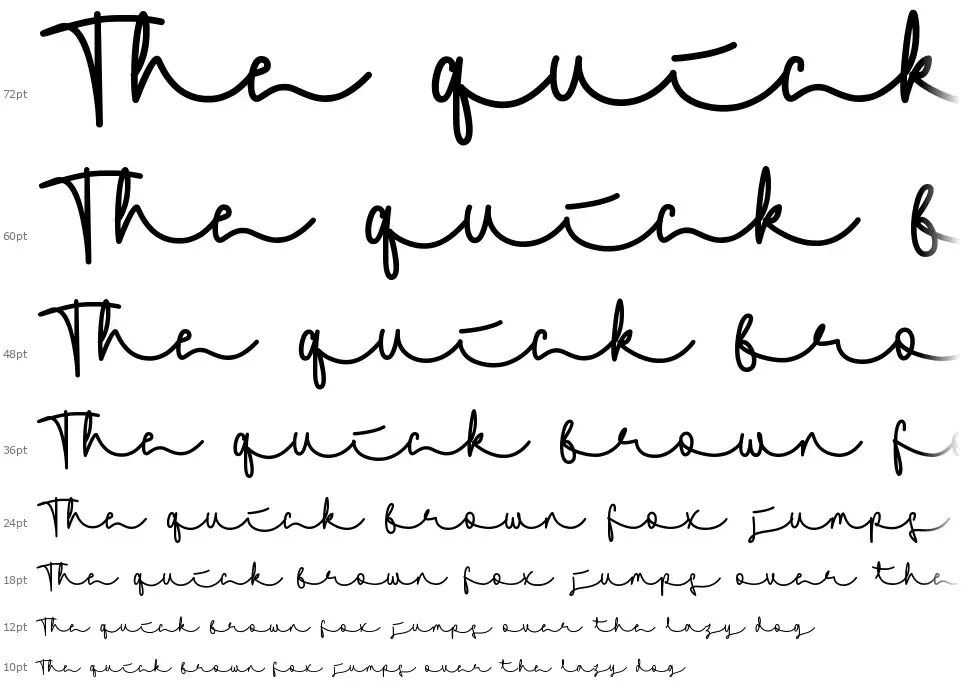 72pt The quick
60pt The quick b
48pt The quick bro
36pt The quick brown fo
24pt The quick brown fox jumps
18pt The quick brown fox jumps over the
12pt The quick brown fox jumps over the lazy dog
10pt The quick brown fox jumps over the lazy dog